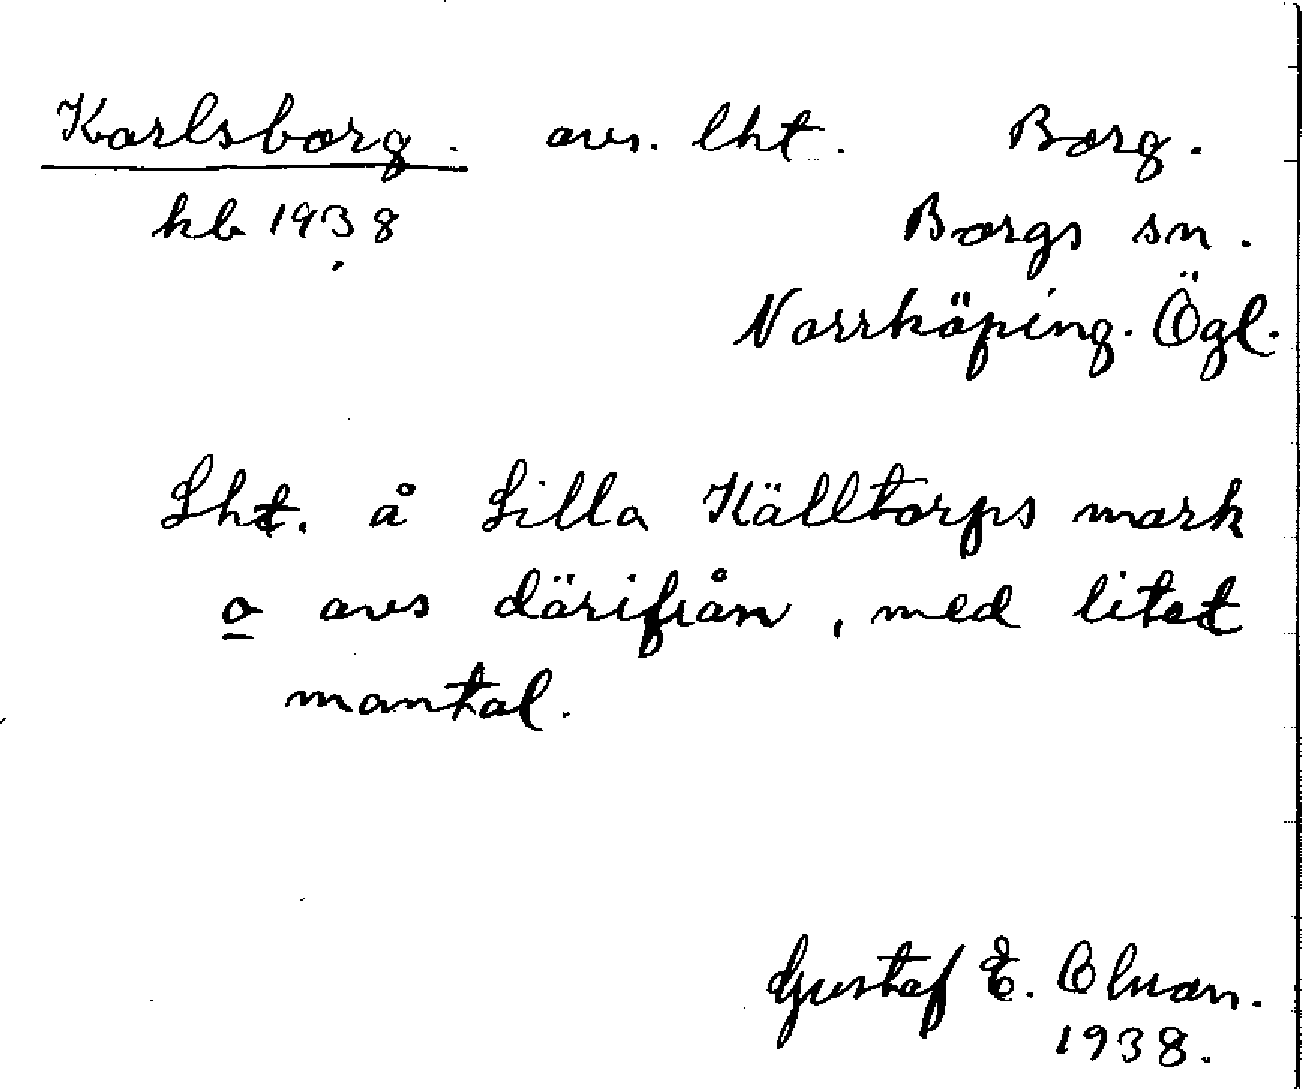 Karlsborg. avs. lht. Borg.
kb 1938 Borgs sn.
Norrköping. Ögl.
Lht. å Lilla Källtorps mark
o avs därifrån, med litet
mantal.
Gustaf E. Olsson.
1938.